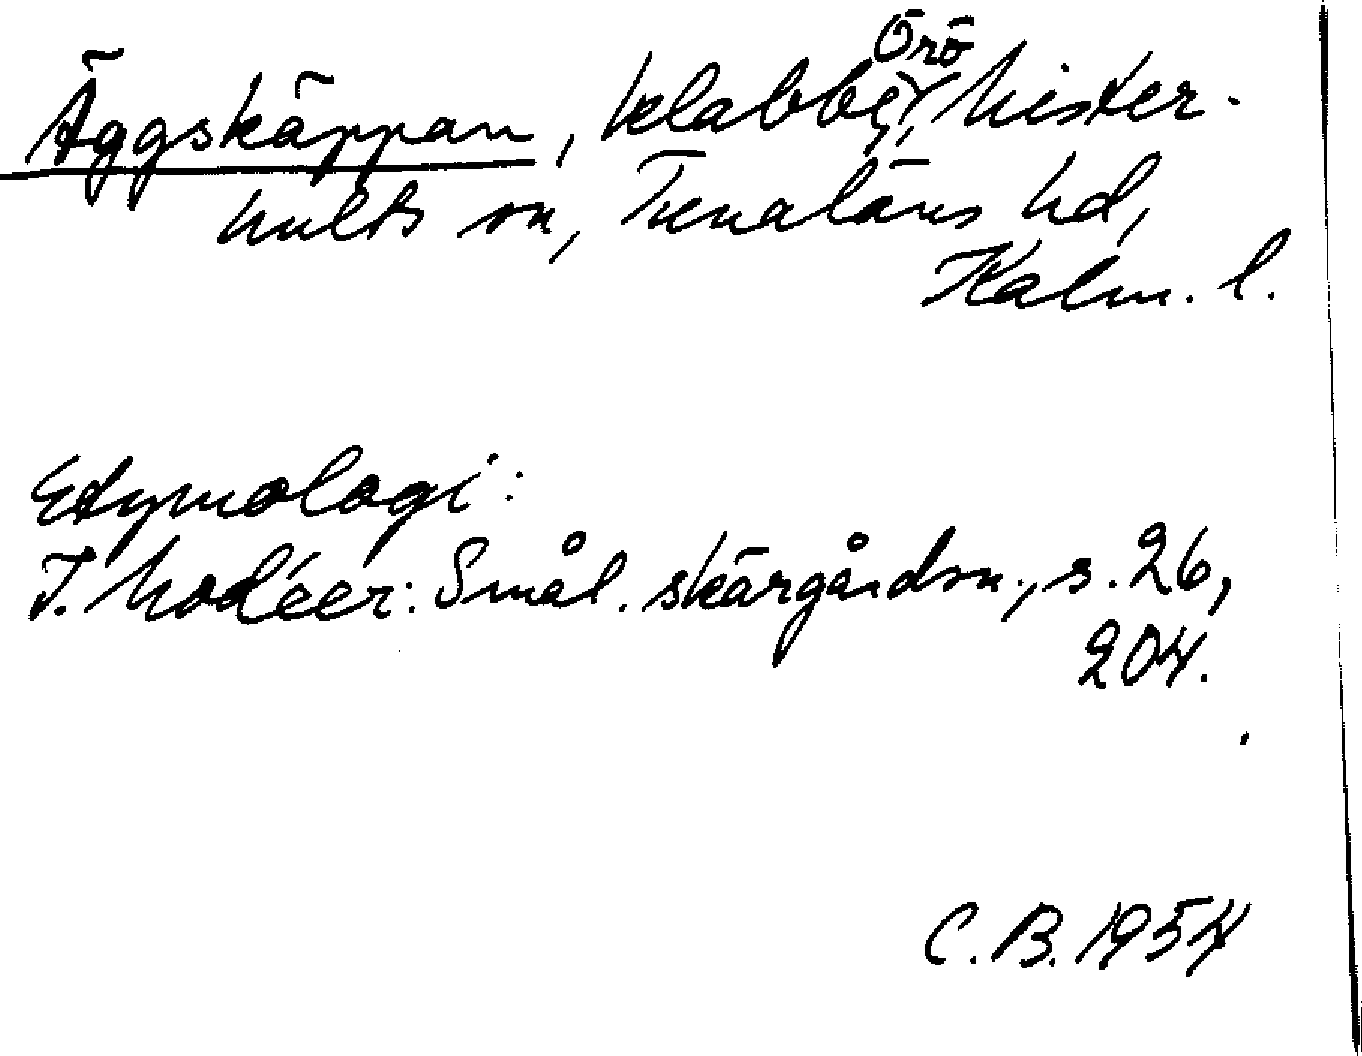 Äggskäppan, klabbe, Örö, Mister-
hults sn, Tunaläns hd,
Kalm. l.
Etymologi:
I. Modéer: Smål. skärgårdsn., s. 26,
204.
C.B. 1954